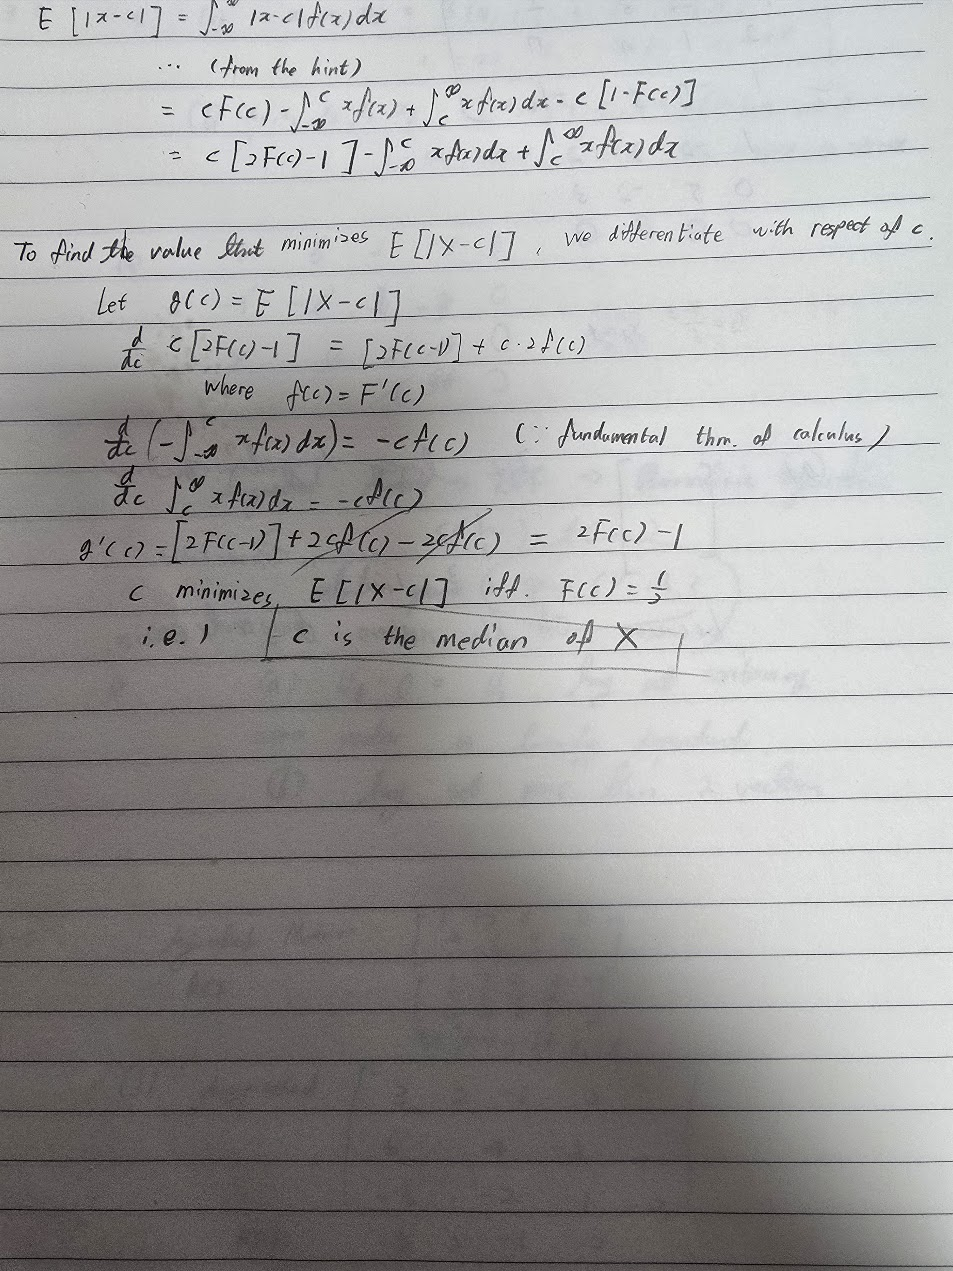 E [|x-c|] = ∫_{-∞}^{∞} |x-c|f(x)dx
... (from the hint)
= cF(c) - ∫_{-∞}^{c} xf(x) + ∫_{c}^{∞} xf(x)dx - c [1-F(c)]
= c [2F(c)-1] - ∫_{-∞}^{c} xf(x)dx + ∫_{c}^{∞} xf(x)dx
To find the value that minimizes E [|X-c|], we differentiate with respect of c.
Let g(c) = E [|X-c|]
d/dc c[2F(c)-1] = [2F(c-1)] + c·2f(c)
where f(c) = F'(c)
d/dc (-∫_{-∞}^{c} xf(x)dx) = -cf(c) (∵ fundamental thm. of calculus)
d/dc ∫_{c}^{∞} xf(x)dx = -cf(c)
g'(c) = [2F(c-1)] + 2cf(c) - 2cf(c) = 2F(c)-1
c minimizes E[|X-c|] iff. F(c) = 1/2
i.e. ) c is the median of X